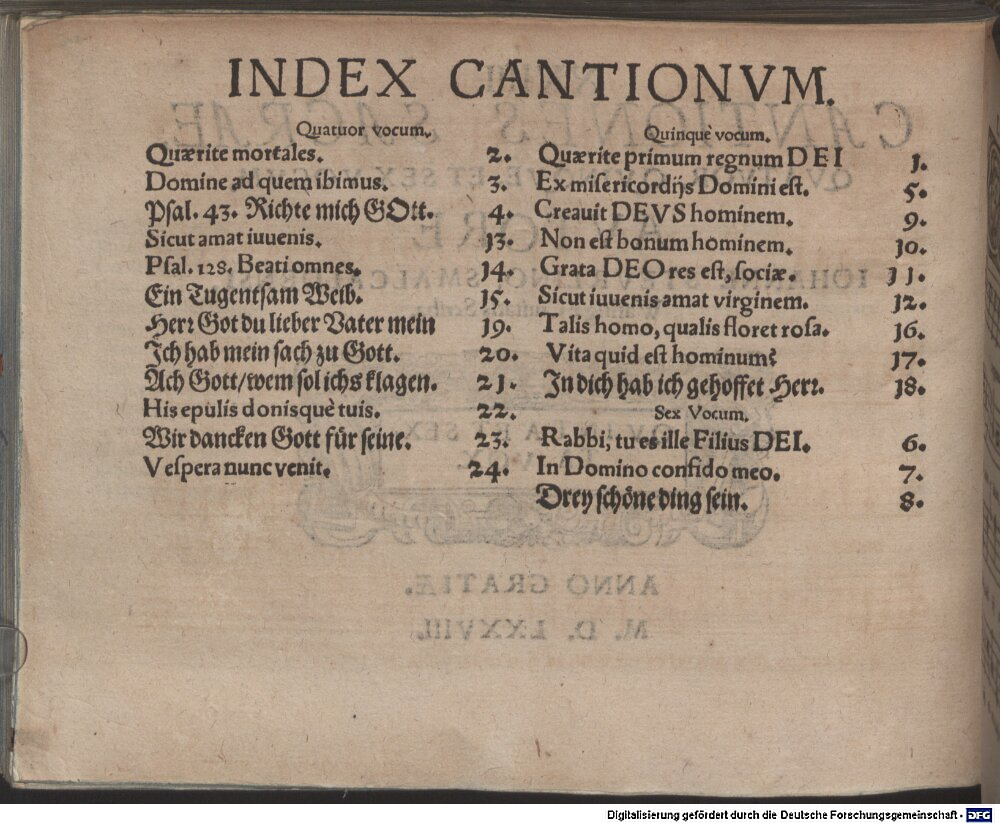 INDEX CANTIONVM.
Quatuor vocum.
Quærite mortales. 2.
Domine ad quem ibimus. 3.
Psal. 43. Richte mich GOtt. 4.
Sicut amat iuuenis. 13.
Psal. 128. Beati omnes. 14.
Ein Tugentsam Weib. 15.
Herr Got du lieber Vater mein 19.
Ich hab mein sach zu Gott. 20.
Ach Gott/wem sol ichs klagen. 21.
His epulis donisquè tuis. 22.
Wir dancken Gott für seine. 23.
Vespera nunc venit. 24.
Quinque vocum.
Quærite primum regnum DEI 1.
Ex misericordijs Domini est. 5.
Creauit DEVS hominem. 9.
Non est bonum hominem. 10.
Grata DEO res est, sociæ. 11.
Sicut iuuenis amat virginem. 12.
Talis homo, qualis floret rosa. 16.
Vita quid est hominum? 17.
In dich hab ich gehoffet Herr. 18.
Sex Vocum.
Rabbi, tu es ille Filius DEI. 6.
In Domino confido meo. 7.
Drey schöne ding sein. 8.
Digitalisierung gefördert durch die Deutsche Forschungsgemeinschaft - DFG